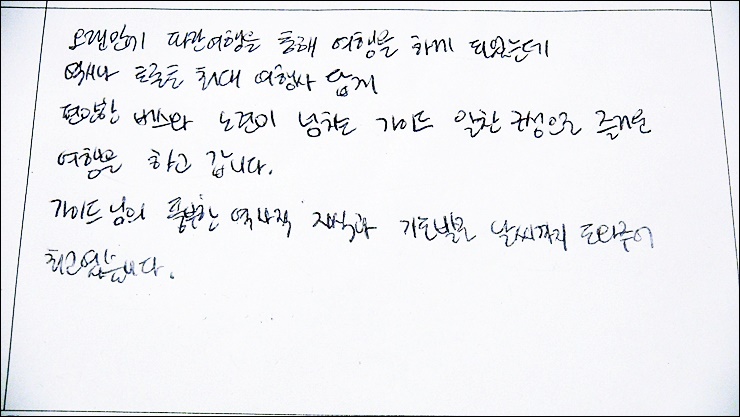 오랜만에 따란여행을 통해 여행을 하게 되었는데
역시나 토론토 최대 여행사 답게
편안한 버스와 노련미 넘치는 가이드 알찬 구성으로 즐거운
여행을 하고 갑니다.
가이드님의 풍부한 역사적 지식과 기도빨로 날씨까지 도와주어
최고였습니다.